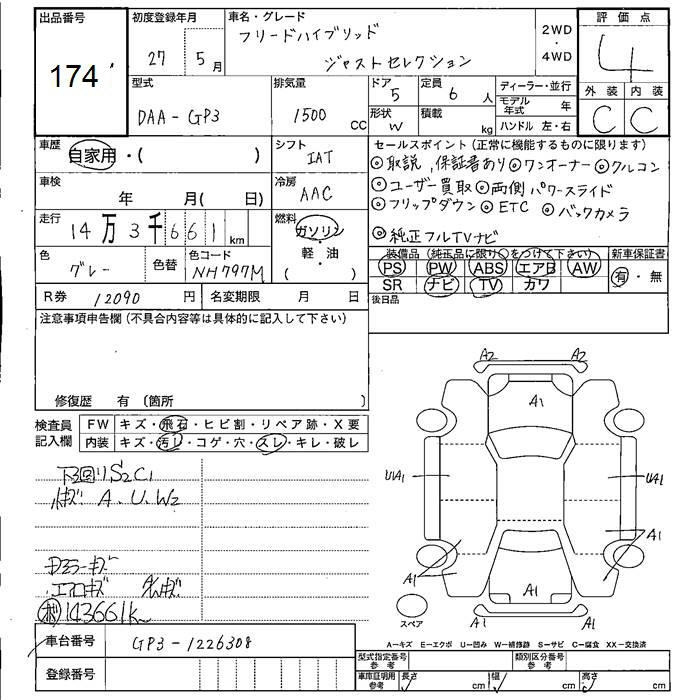 出品番号
174
初度登録年月
27 5月
車名・グレード
フリードハイブリッド
ジャストセレクション
2WD
・
4WD
評価点
4
外装 内装
C C
型式
DAA-GP3
排気量
1500 CC
ドア
5
定員
6 人
形状
W
積載
kg
ディーラー・並行
モデル年式 年
ハンドル 左・右
車歴
自家用・( )
シフト
IAT
車検
年 月( 日)
冷房
AAC
走行
14万3千661km
燃料
ガソリン
・
軽・油
( )
色
グレー
色替
色コード
NH797M
R券 12090 円
名変期限 月 日
セールスポイント(正常に機能するものに限ります)
◎取説、保証書あり◎ワンオーナー◎クルコン
◎ユーザー買取◎両側パワースライド
◎フリップダウン◎ETC ◎バックカメラ
◎純正フルTVナビ
装備品(純正品に限り○をつけて下さい)
PS PW ABS エアB AW
SR ナビ TV カワ
新車保証書
有・無
後日品
注意事項申告欄(不具合内容等は具体的に記入して下さい)
修復歴 有〔箇所 〕
検査員記入欄
FW キズ・飛石・ヒビ割・リペア跡・X要
内装 キズ・汚レ・コゲ・穴・スレ・キレ・破レ
下回りS2C1
A.U.W2
ドアミラーキズ
エアロキズ
143661k
A2 A2
A1
UA1 UA1
A1 A1
A1
A1
スペア
A-キズ E-エクボ U-凹み W-補修跡 S-サビ C-腐食 XX-交換済
車台番号
GP3-1226308
登録番号
型式指定番号
参考
類別区分番号
参考
車庫証明用
参考
長さ cm
幅 cm
高さ cm